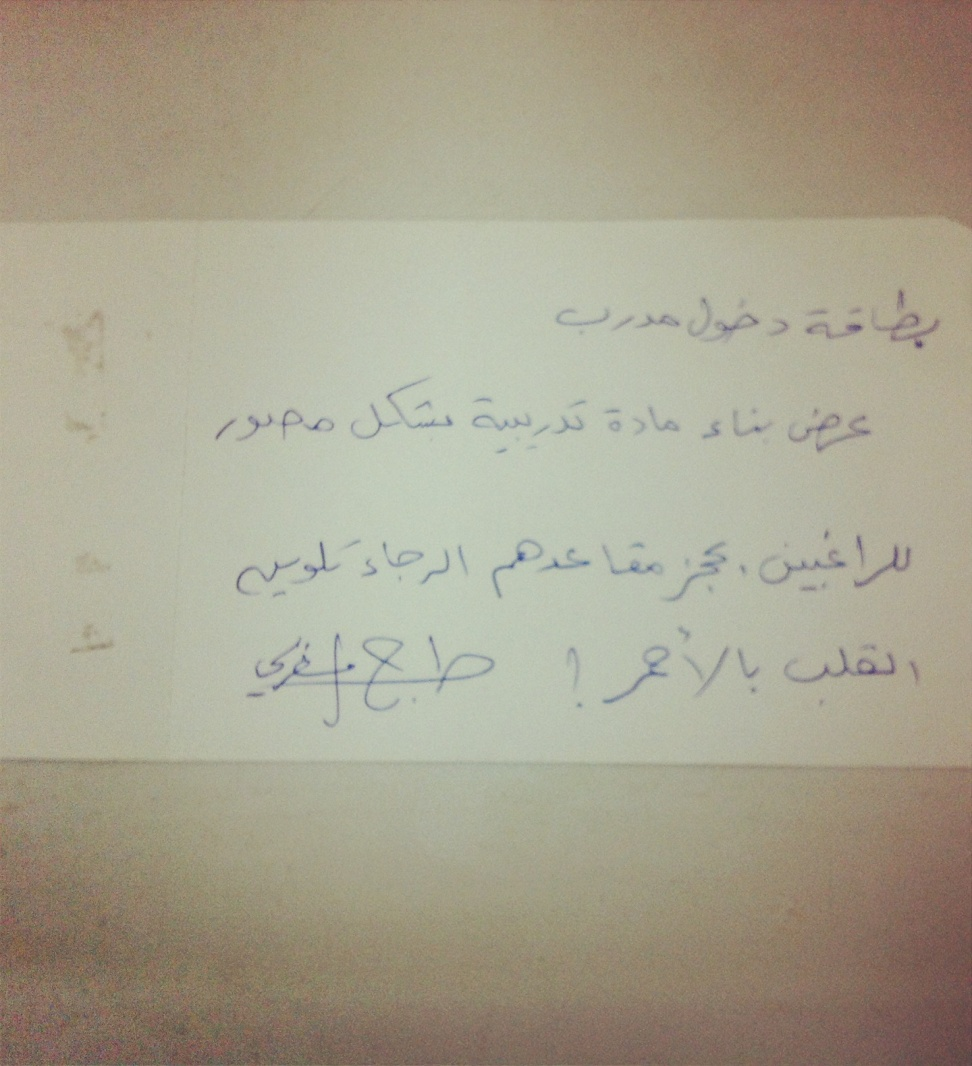 بطاقة دخول مدرب
عرض بناء مادة تدريبية بشكل مصور
للراغبين بحجز مقاعدهم الرجاء تلوين
القلب بالأحمر !